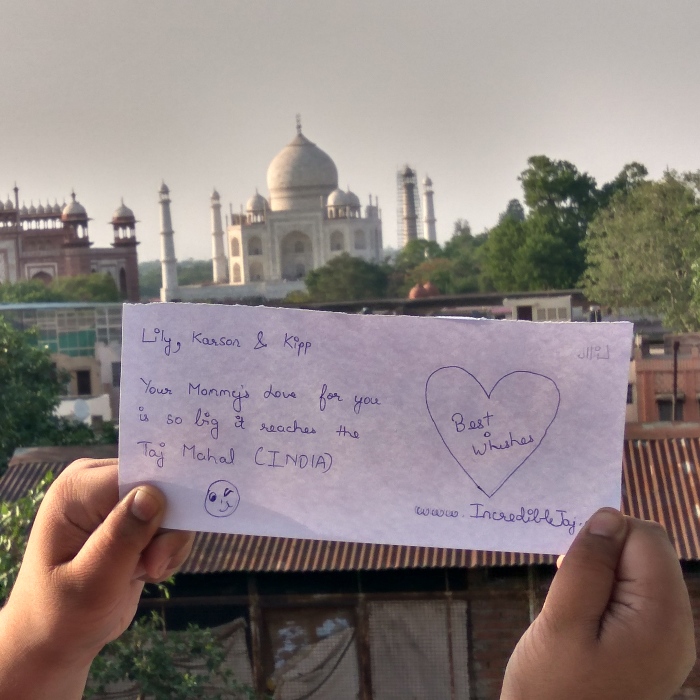 Lily, Karson & Kipp
Your Mommy's Love for you
is so big it reaches the
Taj Mahal (INDIA)
Best
Whishes
www.IncredibleTaj.